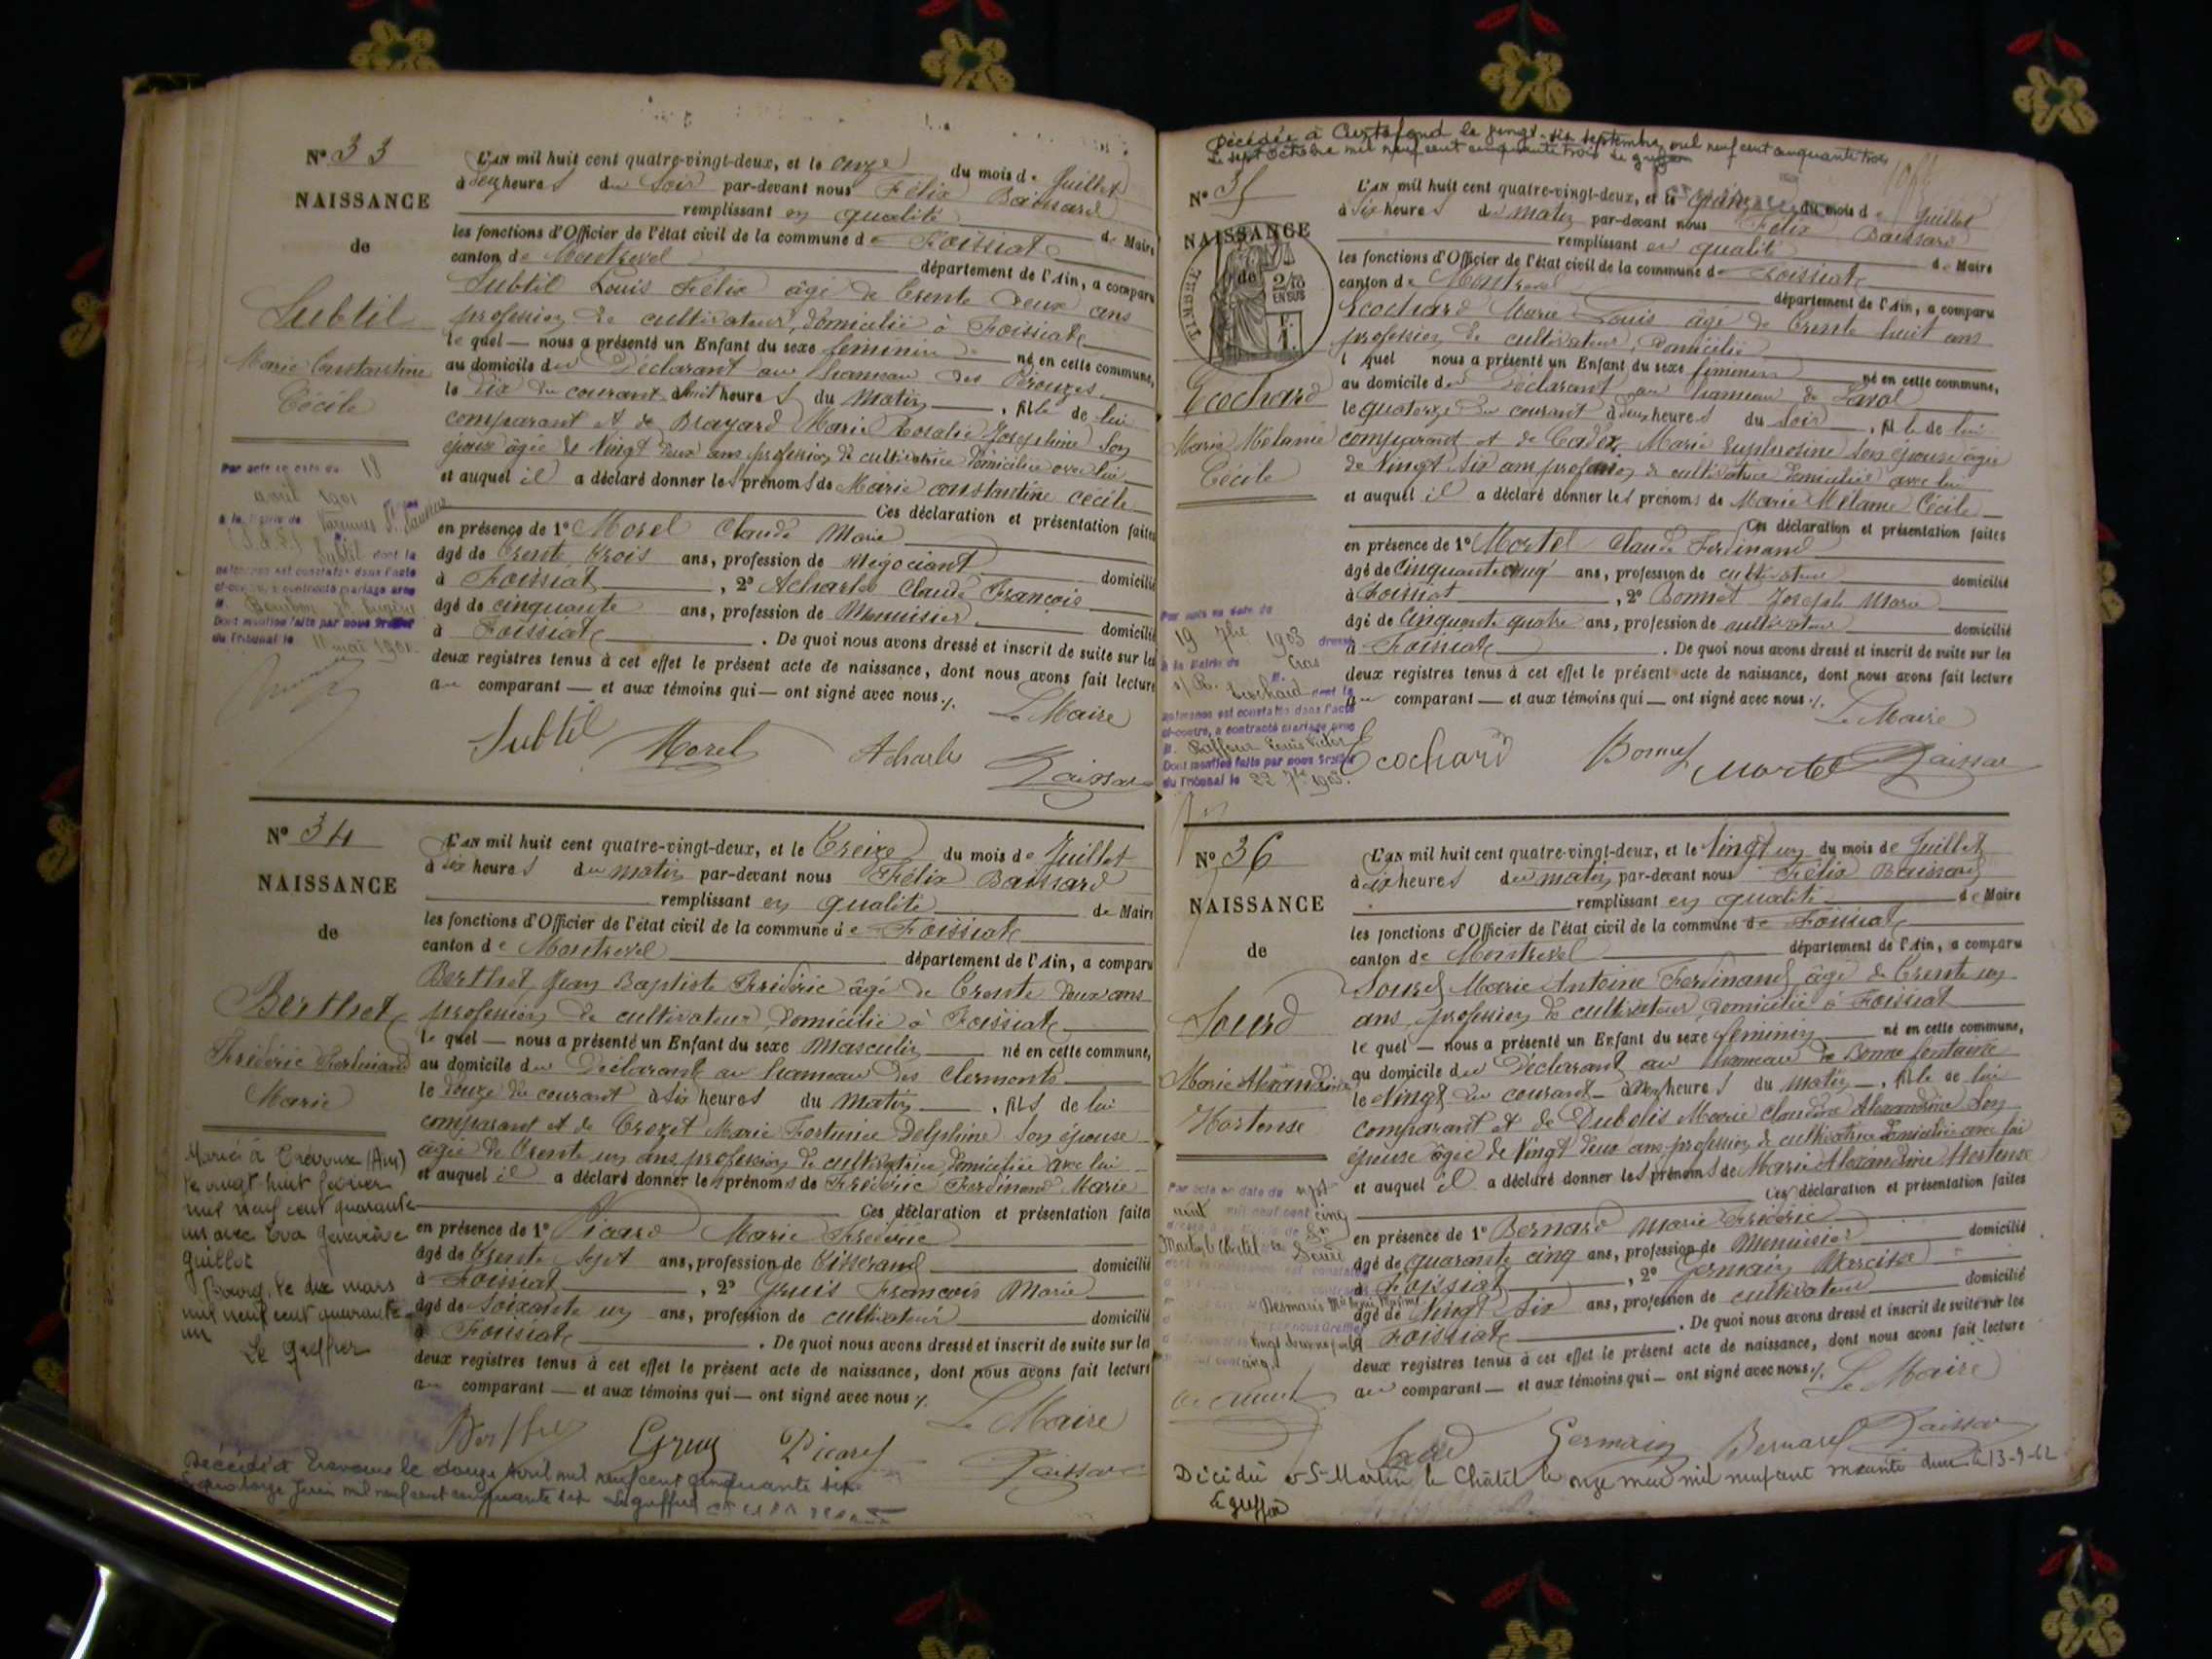 N° 33
NAISSANCE
de
Subtil
Marie Constantine
Cécile
L'AN mil huit cent quatre-vingt-deux, et le onze du mois de Juillet
à heures du Soir par-devant nous Félix Baissard
remplissant en qualité de Maire
les fonctions d'Officier de l'état civil de la commune de Foissiat
canton de Montrevel département de l'Ain, a comparu
Subtil Louis Félix âgé de trente deux ans
profession de cultivateur, domicilié à Foissiat
le quel — nous a présenté un Enfant du sexe féminin né en cette commune,
au domicile du Déclarant au hameau des
le dix du courant à huit heures du Matin, fille de lui
comparant et de Brayard Marie Rosalie Joséphine Son
épouse âgée de Vingt deux ans profession de cultivatrice domiciliée avec lui
et auquel il a déclaré donner les prénoms de Marie constantine cécile
Ces déclaration et présentation faites
en présence de 1° Morel Claude Marie
âgé de trente trois ans, profession de Négociant domicilié
à Foissiat, 2° Acharles Claude François
âgé de cinquante ans, profession de Menuisier domicilié
à Foissiat. De quoi nous avons dressé et inscrit de suite sur les
deux registres tenus à cet effet le présent acte de naissance, dont nous avons fait lecture
au comparant — et aux témoins qui — ont signé avec nous./.
Le Maire
Subtil Morel Acharles Baissard
Par acte en date du 18
avril 1901
à la Mairie de Varennes St Sauveur
(S.&L.) Subtil dont la
naissance est constatée dans l'acte
ci-contre, a contracté mariage avec
M. Eugène
Dont mention faite par nous Greffier
du Tribunal le 11 mai 1901.
N° 34
NAISSANCE
de
Berthet
Frédéric Ferdinand
Marie
L'AN mil huit cent quatre-vingt-deux, et le treize du mois de Juillet
à six heures du matin par-devant nous Félix Baissard
remplissant en qualité de Maire
les fonctions d'Officier de l'état civil de la commune de Foissiat
canton de Montrevel département de l'Ain, a comparu
Berthet Jean Baptiste Frédéric âgé de trente deux ans
profession de cultivateur domicilié à Foissiat
le quel — nous a présenté un Enfant du sexe Masculin né en cette commune,
au domicile du Déclarant au hameau des Clermonts
le douze du courant à six heures du Matin, fils de lui
comparant et de Crozet Marie Fortunée Delphine Son épouse
âgée de trente un ans profession de cultivatrice domiciliée avec lui
et auquel il a déclaré donner les prénoms de Frédéric Ferdinand Marie
Ces déclaration et présentation faites
en présence de 1° Picard Marie Frédéric
âgé de trente sept ans, profession de tisserand domicilié
à Foissiat, 2° Gruis François Marie
âgé de soixante un ans, profession de cultivateur domicilié
à Foissiat. De quoi nous avons dressé et inscrit de suite sur les
deux registres tenus à cet effet le présent acte de naissance, dont nous avons fait lecture
au comparant — et aux témoins qui — ont signé avec nous ./.
Le Maire
Berthet Picard Baissard
Marié à (Ain)
le vingt huit février
mil neuf cent quarante
un avec Eva Geneviève
Guillot
Bourg, le dix mars
mil neuf cent quarante
un
Le Greffier
Décédé à le douze Avril mil neuf cent cinquante six
Le quatorze Juin mil neuf cent cinquante six Le greffier
Décédée à Curtafond le vingt-six septembre mil neuf cent cinquante trois
Le sept Octobre mil neuf cent cinquante trois Le greffier
N° 35
NAISSANCE
de
TIMBRE
2/10
EN SUS
Ecochard
Marie Mélanie
Cécile
L'AN mil huit cent quatre-vingt-deux, et le quinze du mois de Juillet
à six heures du matin par-devant nous Félix Baissard
remplissant en qualité de Maire
les fonctions d'Officier de l'état civil de la commune de Foissiat
canton de Montrevel département de l'Ain, a comparu
Ecochard Marie Louis âgé de trente huit ans
profession de cultivateur, domicilié
l quel nous a présenté un Enfant du sexe féminin né en cette commune,
au domicile du Déclarant au hameau de Laval
le quatorze du courant à deux heures du Soir, fille de lui
comparant et de Cadex Marie Euphrosine Son épouse âgée
de Vingt six ans profession de cultivatrice domiciliée avec lui
et auquel il a déclaré donner les prénoms de Marie Mélanie Cécile
Ces déclaration et présentation faites
en présence de 1° Mortel Claude Ferdinand
âgé de Cinquante cinq ans, profession de cultivateur domicilié
à Foissiat, 2° Bonnet Joseph Marie
âgé de Cinquante quatre ans, profession de cultivateur domicilié
à Foissiat. De quoi nous avons dressé et inscrit de suite sur les
deux registres tenus à cet effet le présent acte de naissance, dont nous avons fait lecture
au comparant — et aux témoins qui — ont signé avec nous ./.
Le Maire
Ecochard Bonnet Mortel Baissard
Par acte en date du
19 7bre 1903 dressé
à la Mairie de Cras
s/ R. Ecochard dont la
naissance est constatée dans l'acte
ci-contre, a contracté mariage avec
M. Louis Victor
Dont mention faite par nous Greffier
du Tribunal le 22 7bre 1903.
N° 36
NAISSANCE
de
Sourd
Marie Alexandrine
Hortense
L'AN mil huit cent quatre-vingt-deux, et le Vingt un du mois de Juillet
à six heures du matin par-devant nous Félix Baissard
remplissant en qualité de Maire
les fonctions d'Officier de l'état civil de la commune de Foissiat
canton de Montrevel département de l'Ain, a comparu
Sourd Marie Antoine Ferdinand âgé de trente un
ans, profession de cultivateur domicilié à Foissiat
le quel — nous a présenté un Enfant du sexe féminin né en cette commune,
au domicile du Déclarant au hameau de Bonne fontaine
le Vingt du courant à heures du matin, fille de lui
comparant et de Dubois Marie Claudine Alexandrine Son
épouse âgée de Vingt deux ans profession de cultivatrice domiciliée avec lui
et auquel il a déclaré donner les prénoms de Marie Alexandrine Hortense
Ces déclaration et présentation faites
en présence de 1° Bernard Marie Frédéric
âgé de quarante cinq ans, profession de Menuisier domicilié
à Foissiat, 2° Germain Narcisse
âgé de Vingt six ans, profession de cultivateur domicilié
à Foissiat. De quoi nous avons dressé et inscrit de suite sur les
deux registres tenus à cet effet le présent acte de naissance, dont nous avons fait lecture
au comparant — et aux témoins qui — ont signé avec nous ./.
Le Maire
Sourd Germain Bernard Baissard
Par acte en date du sept
août mil neuf cent cinq
Martin le Chatel Sourd
Desmaris
Décédée à St-Martin le Châtel le onze mai mil neuf cent soixante deux le 13-9-62
Le greffier